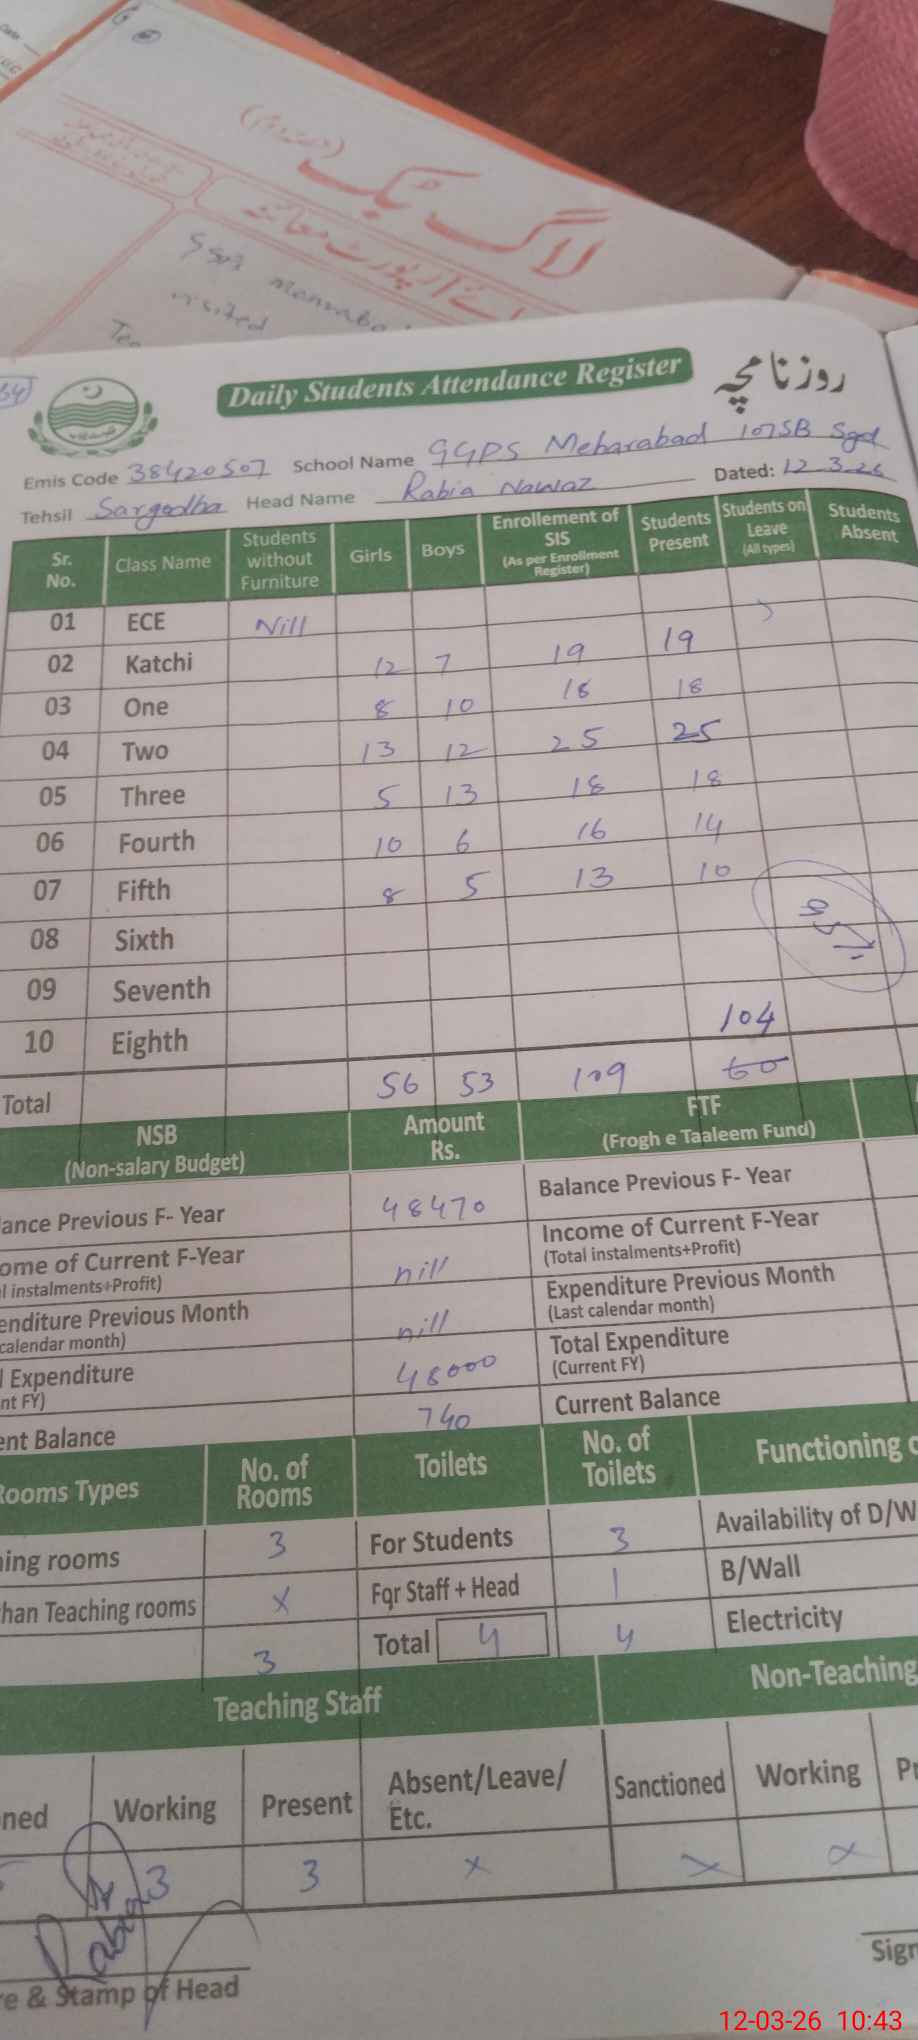 لاگ بک
visited
Daily Students Attendance Register روزنامچہ
Emis Code 38420507 School Name GGPS Meharabad 107SB Sgd
Tehsil Sargodha Head Name Rabia Nawaz Dated: 12-3-26
Sr. No. Class Name Students without Furniture Girls Boys Enrollement of SIS (As per Enrollment Register) Students Present Students on Leave (All types) Students Absent
01 ECE Nill
02 Katchi 12 7 19 19
03 One 8 10 18 18
04 Two 13 12 25 25
05 Three 5 13 18 18
06 Fourth 10 6 16 14
07 Fifth 8 5 13 10
08 Sixth
09 Seventh
10 Eighth 104
Total 56 53 109 60
NSB (Non-salary Budget) Amount Rs. FTF (Frogh e Taaleem Fund)
ance Previous F- Year 48470 Balance Previous F- Year
ome of Current F-Year nill Income of Current F-Year
l instalments+Profit) (Total instalments+Profit)
enditure Previous Month nill Expenditure Previous Month
calendar month) (Last calendar month)
l Expenditure 48000 Total Expenditure
nt FY) (Current FY)
ent Balance 740 Current Balance
Rooms Types No. of Rooms Toilets No. of Toilets Functioning o
ning rooms 3 For Students 3 Availability of D/W
han Teaching rooms x For Staff + Head 1 B/Wall
3 Total 4 4 Electricity
Teaching Staff Non-Teaching
ned Working Present Absent/Leave/ Etc. Sanctioned Working Pr
3 3 x x x
Rabia
re & Stamp of Head Sign
12-03-26 10:43